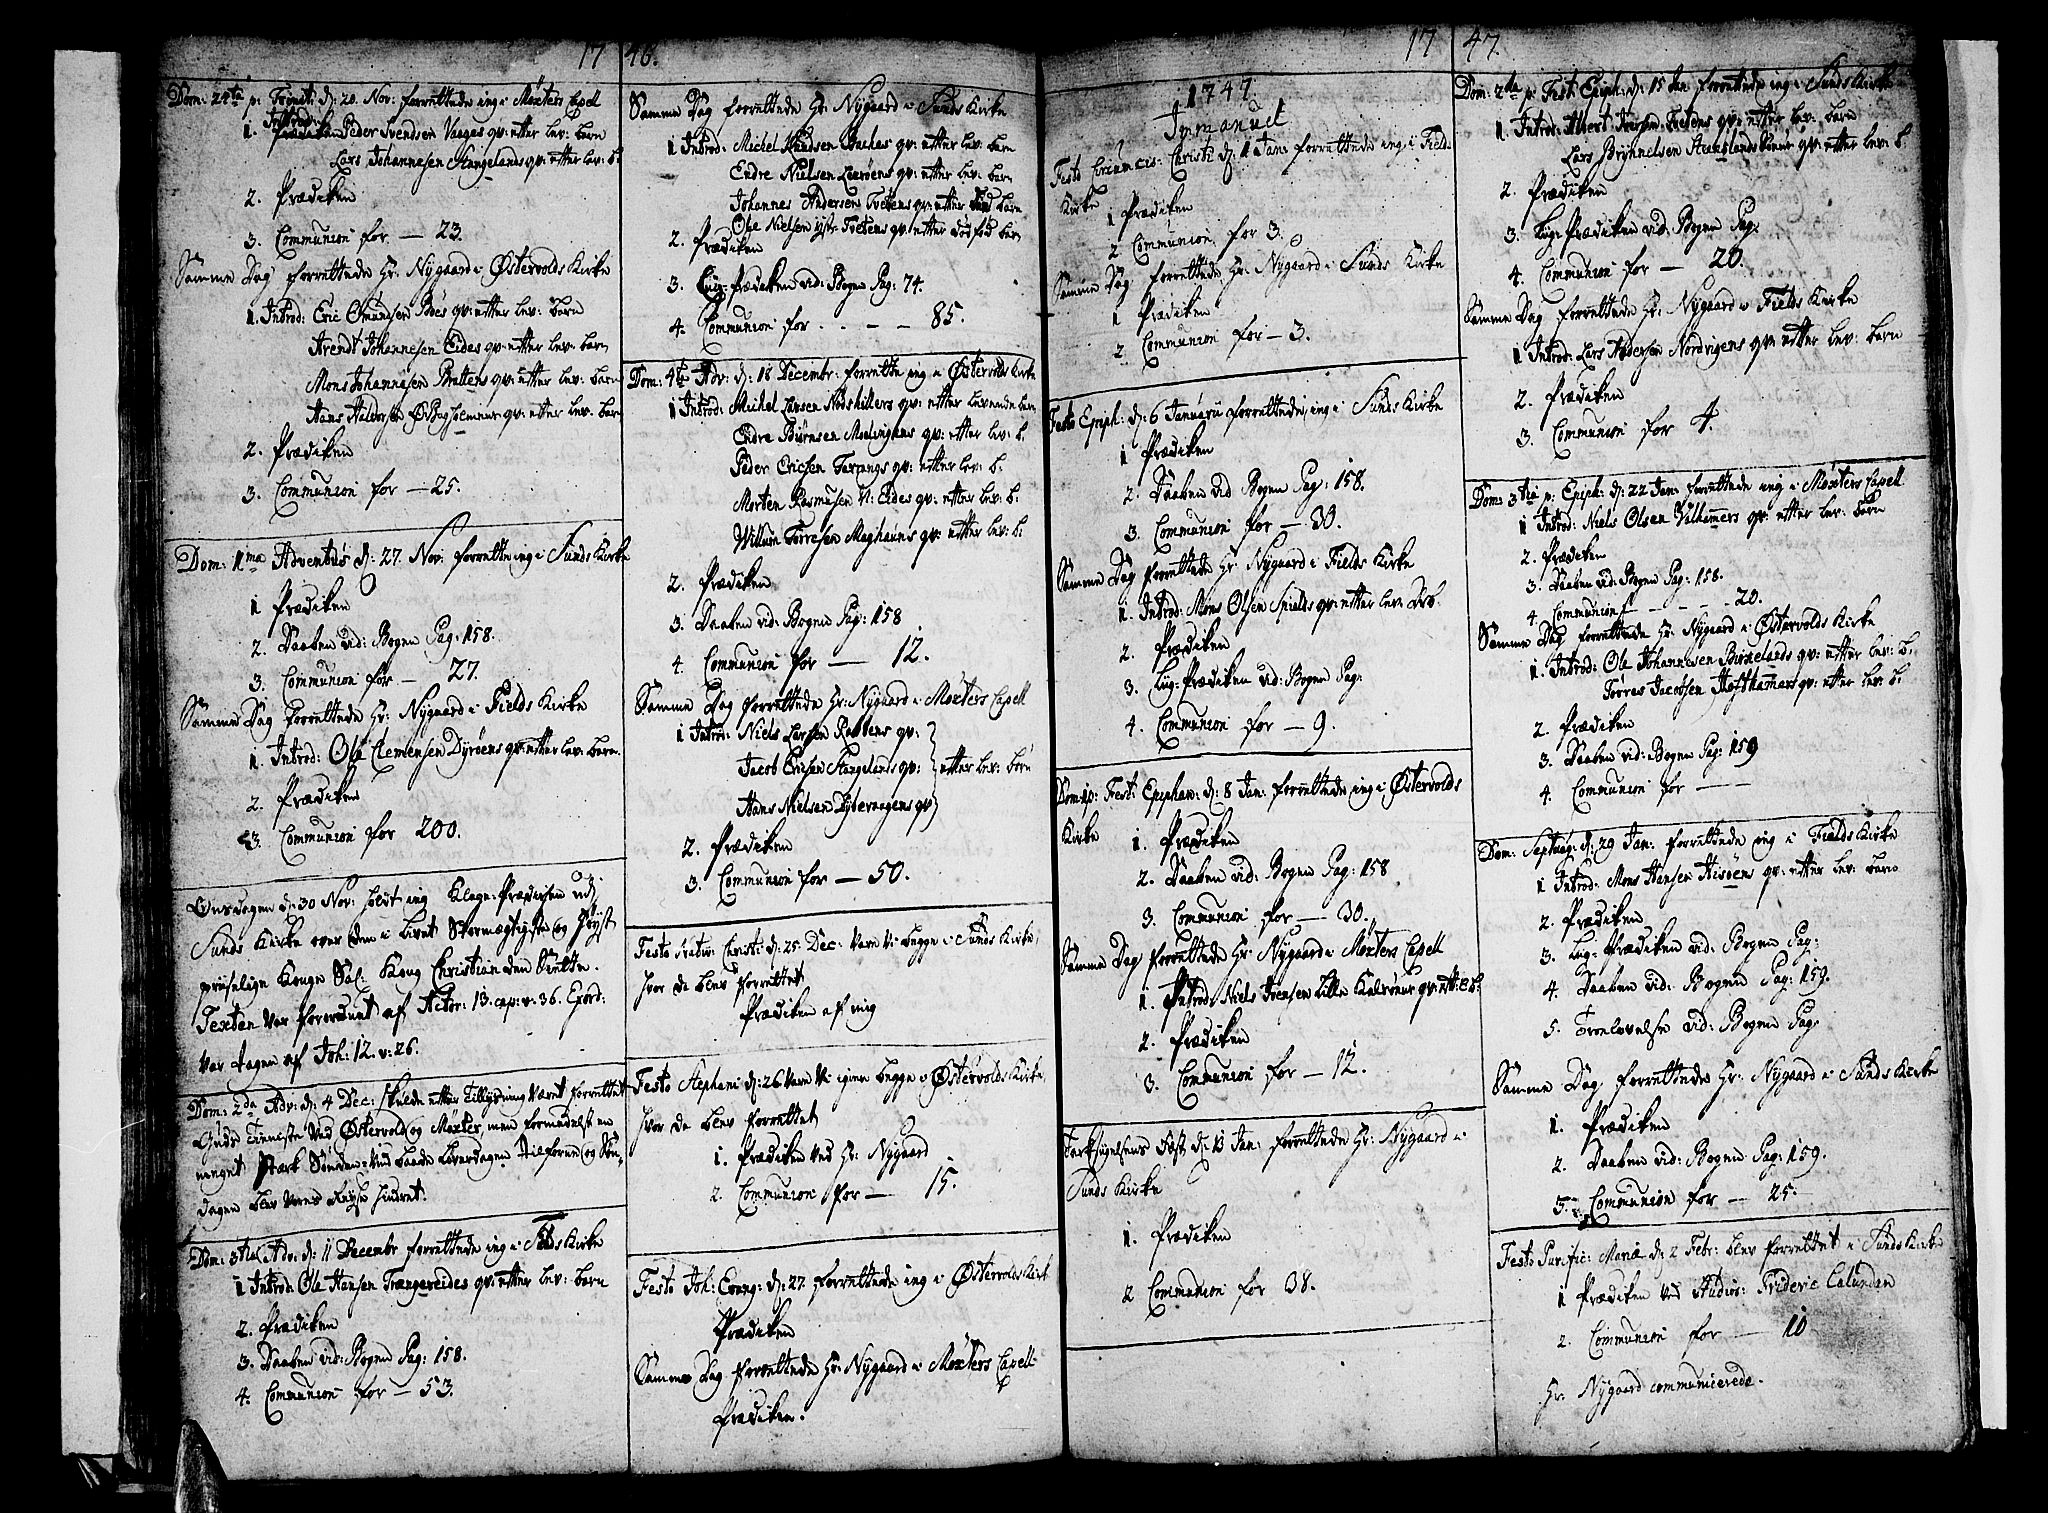 17 46.
Dom: 24ta p: Trinit: d: 20. Nov: forrettede ieg i Møxters Capell
1. Introd:
Peder Svendsen Vaages qv: efter lev: barn
Lars Johannesen Hangelands qv: efter lev: b.
2. Prædiken
3. Communion for — 23.
Samme Dag forrettede Hr: Nygaard i Østervolds Kirke
1. Introd: Eric Omundsen Bøes qv: efter lev: barn
Arendt Johannesen Eides qv: efter lev: barn
Mons Johannesen Brattens qv: efter lev: barn
Hans Haldorsen qv: efter lev: barn
2. Prædiken
3. Communion for — 25.
Dom: 1ma Adventus d: 27. Nov: forrettede ieg i Sunds Kirke
1 Prædiken
2. Daaben vid: Bogen Pag: 158.
3. Communion for — 27.
Samme Dag forrettede Hr: Nygaard i Fields Kirke
1. Introd: Ole Clemensen Dyrøens qv: efter lev: barn.
2. Prædiken
3. Communion for 200.
Onsdagen d: 30 Nov: holdt ieg Klage-Prædiken udj
Sunds Kirke over den i Livet Stormægtigste og Høyst
priiselige Konge Sal: Kong Christian den Siette.
Texten var forordnet af Actor: 13. cap: v: 36. Exord:
var tagen af Joh: 12. v: 26.
Dom: 2da Adv: d: 4 Dec: skulde efter Tillysning været forrettet
Guds Tieneste ved Østervold og Møxter, men formedelst en
meget stærk Sønden-Vind baade Løverdagen tilforne og Søn-
dagen blev vores Reyse hindret.
Dom: 3tia Adv: d: 11 Decembr forrettede ieg i Fields Kirke
1 Introd: Ole Hansen Trængereides qv: efter lev: barn
2. Prædiken
3. Daaben vid: Bogen Pag: 158.
4. Communion for — 53.
Samme Dag forrettede Hr: Nygaard i Sunds Kirke
1 Introd: Michel Knudsen Backes qv: efter lev: barn
Endre Nielsen Leerøens qv: efter lev: barn
Johannes Andersen Tvetens qv: efter barn
Ole Nielsen ystr Tvetens qv: efter dødfød barn
2. Prædiken
3. Liig-Prædiken vid: Bogen Pag: 74.
4. Communion for . — — — 85.
Dom: 4ta Adv: d: 18 Decembr: forrettede ieg i Østervolds Kirke
1 Introd: Michel Larsen qv: efter levende barn
Endre Biørnsen Møclingens qv: efter lev: b.
Peder Ericksen Tarangs qv: efter lev: b.
Morten Rasmusen N: Eides qv: efter lev: b.
Willum Torresen Maghauns qv: efter lev: b.
2. Prædiken
3. Daaben vid: Bogen Pag: 158
4. Communion for — 12.
Samme Dag forrettede Hr: Nygaard i Møxters Capell
1 Introd: Niels Larsen Rostens qv:
Jacob Ericsen Hangelands qv: efter lev: børn
Hans Nielsen Dybevaagens qv
2. Prædiken
3. Communion for — 50.
Festo Nativ: Christi d: 25. Dec: vare vi begge i Sunds Kirke,
hvor da blev forrettet
Prædiken af mig
Festo Stephani d: 26 vare vi igien begge i Østervolds Kirke,
hvor da blev forrettet
1. Prædiken ved Hr: Nygaard
2. Communion for — 15.
Festo Joh: Evang: d: 27. forrettede ieg i Østervolds Kirk
Prædiken
Samme Dag forrettede Hr: Nygaard i Møxters Capell
Prædiken.
17 47.
1747
Immanuel
Festo Circumcis: Christi d: 1 Jan: forrettede ieg i Fields
Kirke
1 Prædiken
2 Communion for 3.
Samme Dag forrettede Hr: Nygaard i Sunds Kirke
1 Prædiken
2 Communion for — 3.
Festo Epiph: d: 6 Januarii forrettede ieg i Sunds Kirke
1 Prædiken
2. Daaben vid Bogen Pag: 158.
3. Communion for — 30.
Samme Dag forrettede Hr: Nygaard i Fields Kirke
1. Introd: Mons Olsen Spields qv: efter lev: Drb.
2. Prædiken
3. Liig-Prædiken vid: Bogen Pag:
4. Communion for — 9.
Dom: 1 p: Fest: Epiphan: d: 8 Jan: forrettede ieg i Østervolds
Kirke
1. Prædiken
2. Daaben vid: Bogen Pag: 158
3. Communion for — 30.
Samme Dag forrettede Hr: Nygaard i Møxters Capell
1. Introd: Niels Ivensen Lille Kalsøens qv: eft: l: b:
2. Prædiken
3. Communion for — 12.
Tacksigelsens Fæst d: 13 Jan: forrettede Hr: Nygaard i
Sunds Kirke
1. Prædiken
2 Communion for 38.
Dom: 2da p: Fest: Epiph: d: 15 Jan: forrettede ieg i Sunds Kirke
1 Introd: Albert Iversen Tvetens qv: efter lev: barn
Lars Brynnelsen qv: efter lev: b.
2. Prædiken
3. Liig-Prædiken vid: Bogen Pag:
4. Communion for — 20.
Samme Dag forrettede Hr: Nygaard i Fields Kirke
1 Introd: Lars Andersen Nordvigens qv: efter lev: barn
2. Prædiken
3. Communion for 4.
Dom: 3tia p: Epiph: d: 22 Jan: forrettede ieg i Møxters Capell
1 Introd: Niels Olsen Valhammers qv: efter lev: barn
2. Prædiken
3. Daaben vid: Bogen Pag: 158.
4. Communion f — — — 20.
Samme Dag forrettede Hr: Nygaard i Østervolds Kirke
1. Introd: Ole Johannesen Birkelands qv: efter lev: b.
Torres Jacobsen Hofthamars qv: efter lev: b.
2. Prædiken
3. Daaben vid: Bogen Pag: 159
4. Communion for — —
Dom: Septuag: d: 29 Jan: forrettede ieg i Fields Kirke
1 Introd: Mons Hansen Hisøens qv: efter lev: barn
2. Prædiken
3. Liig-Prædiken vid: Bogen Pag:
4. Daaben vid: Bogen Pag: 159.
5. Trolovelse vid: Bogen Pag:
Samme Dag forrettede Hr: Nygaard i Sunds Kirke
1. Prædiken
2. Daaben vid: Bogen Pag: 159.
3. Communion for — 25.
Festo Purific: Mariæ d: 2 Febr: blev forrettet i Sunds Kirke
1 Prædiken ved Studios: Frideric Calundan
2. Communion for — 10
Hr: Nygaard communicerede.